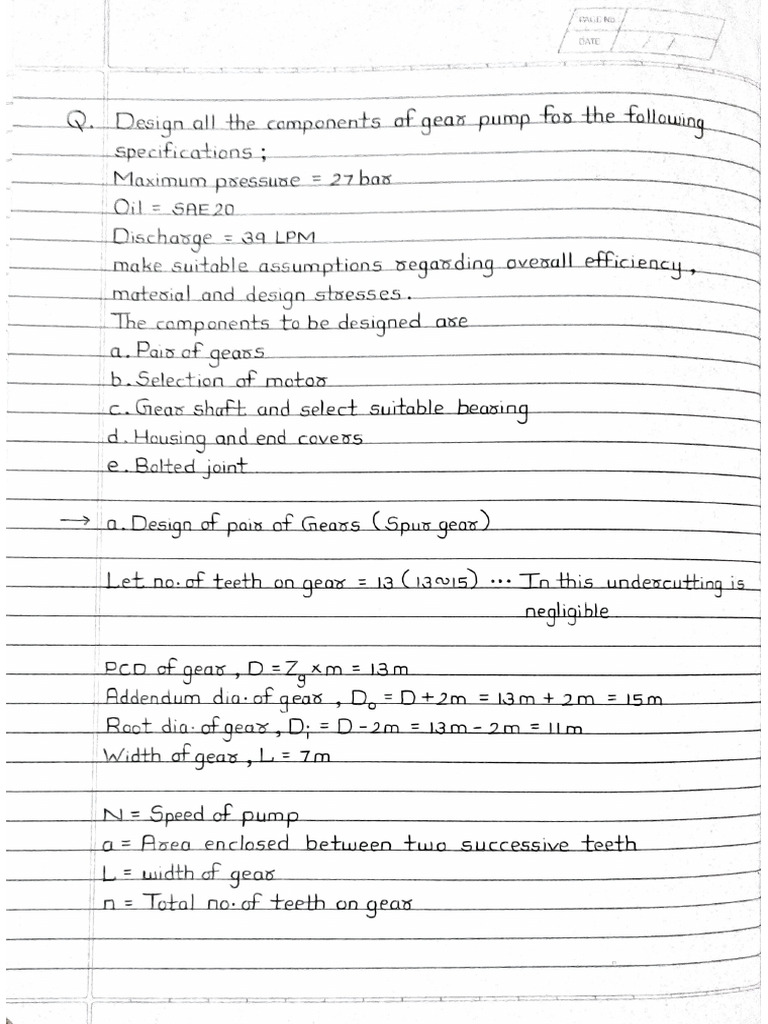 PAGE NO
DATE / /
Q. Design all the components of gear pump for the following
specifications ;
Maximum pressure = 27 bar
Oil = SAE 20
Discharge = 39 LPM
make suitable assumptions regarding overall efficiency,
material and design stresses.
The components to be designed are
a. Pair of gears
b. Selection of motor
c. Gear shaft and select suitable bearing
d. Housing and end covers
e. Bolted joint
→ a. Design of pair of Gears (Spur gear)
Let no. of teeth on gear = 13 (13~15) ... In this undercutting is
negligible
PCD of gear, D = Zg × m = 13m
Addendum dia. of gear, Do = D + 2m = 13m + 2m = 15m
Root dia. of gear, Di = D - 2m = 13m - 2m = 11m
Width of gear, L = 7m
N = Speed of pump
a = Area enclosed between two successive teeth
L = width of gear
n = Total no. of teeth on gear